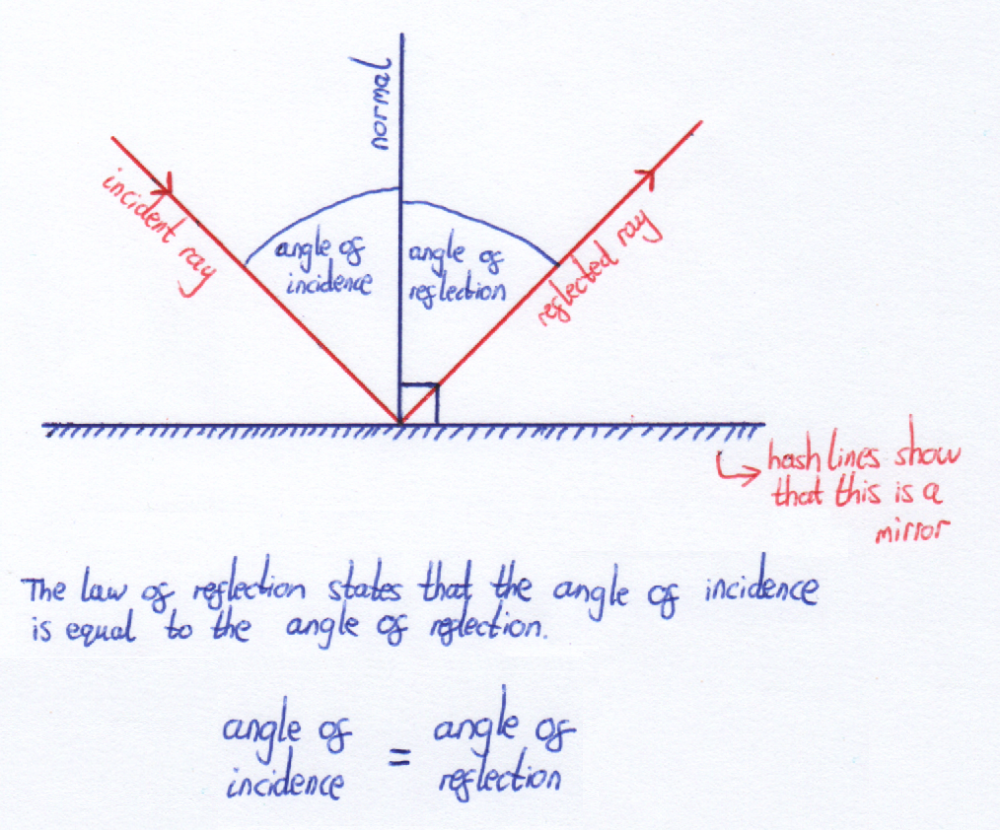 normal
incident ray
angle of
incidence
angle of
reflection
reflected ray
hash lines show
that this is a
mirror
The law of reflection states that the angle of incidence
is equal to the angle of reflection.
angle of
incidence
=
angle of
reflection